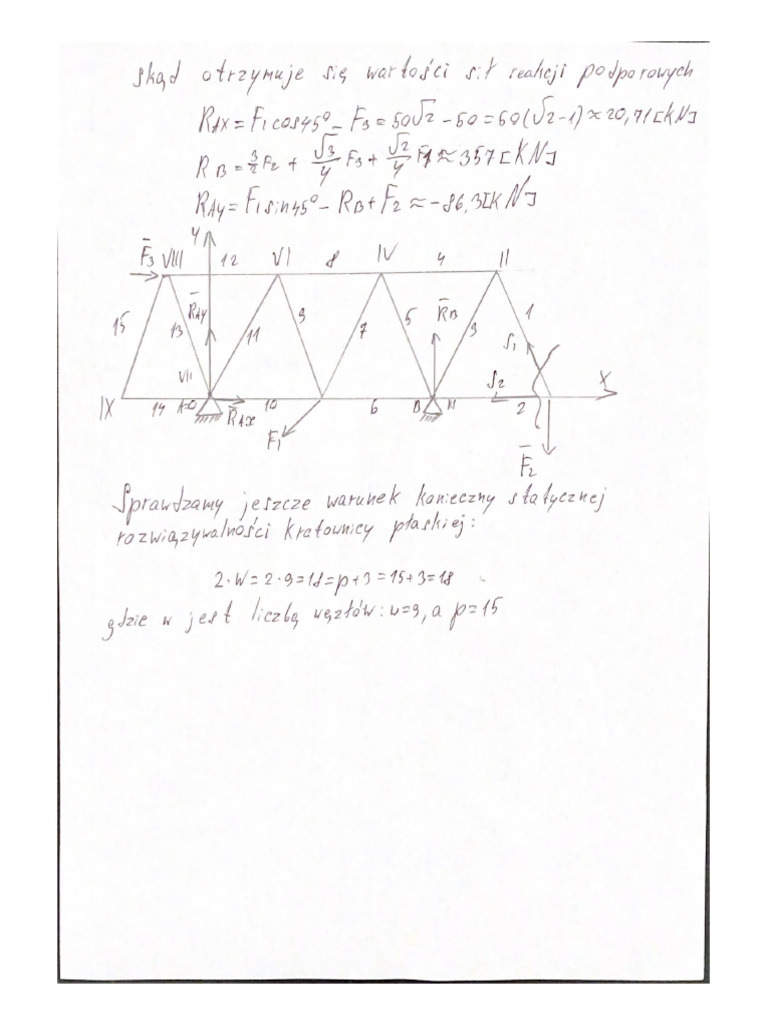 skąd otrzymuje się wartości sił reakcji podporowych
RAX = F1 cos45° - F3 = 50√2 - 50 = 50(√2-1) ≈ 20,71 [kN]
RB = 3/2 F2 + √3/4 F3 + √2/4 F1 ≈ 357 [kN]
RAY = F1 sin45° - RB + F2 ≈ -86,3 [kN]
Y
F3 VIII 12 VI 8 IV 4 II
15 13 RAY 11 9 7 5 RB 3 1
S1
VII S2 X
IX 14 A=0 RAX 10 6 B III 2
F1 F2
Sprawdzamy jeszcze warunek konieczny statycznej
rozwiązywalności kratownicy płaskiej:
2·W = 2·9 = 18 = p+3 = 15+3 = 18
gdzie w jest liczbą węzłów: w=9, a p=15